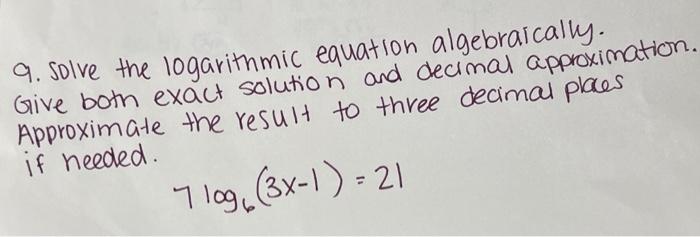 9. Solve the logarithmic equation algebraically.
Give both exact solution and decimal approximation.
Approximate the result to three decimal places
if needed.
7 log₆(3x-1) = 21